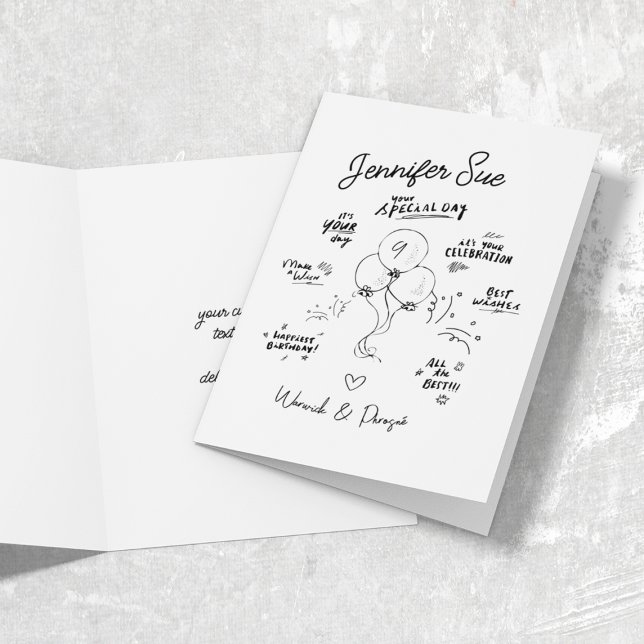 Jennifer Sue
your
SPECIAL DAY
IT'S
YOUR
day
it's your
CELEBRATION
9
Make
a Wish
BEST
WISHES
HAPPIEST
BIRTHDAY!
ALL
the
BEST!!!
Warwick & Phrogné
your cu
text
del